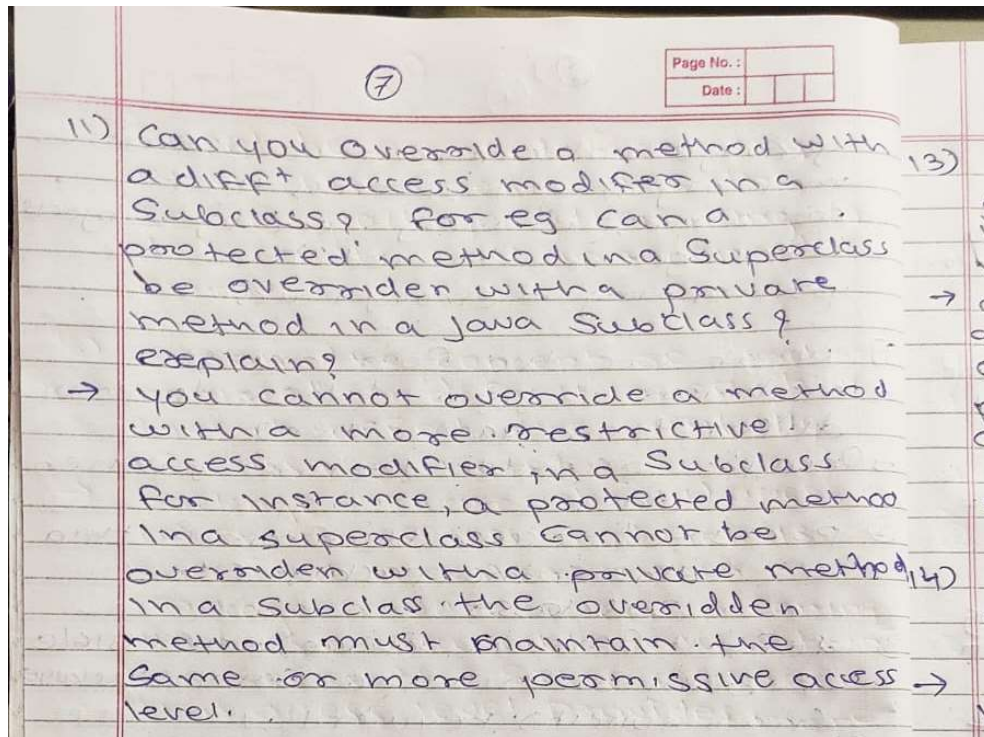 7
Page No. :
Date :
11) Can you override a method with
a difft access modifier in a
Subclass? for eg can a
protected method in a Superclass
be overriden with a private
method in a java Subclass?
explain?
→ you cannot override a method
with a more restrictive
access modifier in a Subclass
for instance, a protected method
in a superclass cannot be
overriden with a private method
in a subclass the overidden
method must maintain the
Same or more permissive access
level.
13)
→
14)
→